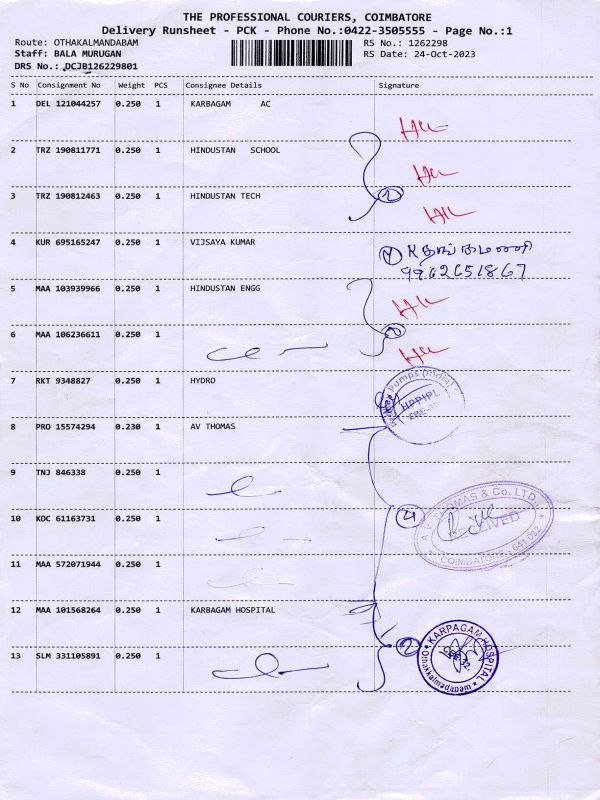 THE PROFESSIONAL COURIERS, COIMBATORE
Delivery Runsheet - PCK - Phone No.:0422-3505555 - Page No.:1
Route: OTHAKALMANDABAM RS No.: 1262298
Staff: BALA MURUGAN RS Date: 24-Oct-2023
DRS No.: DCJB126229801
S No Consignment No Weight PCS Consignee Details Signature
1 DEL 121044257 0.250 1 KARBAGAM AC
2 TRZ 190811771 0.250 1 HINDUSTAN SCHOOL
3 TRZ 190812463 0.250 1 HINDUSTAN TECH
4 KUR 695165247 0.250 1 VIJSAYA KUMAR
9962651867
5 MAA 103939966 0.250 1 HINDUSTAN ENGG
6 MAA 106236611 0.250 1
7 RKT 9348827 0.250 1 HYDRO
Pumps (India)
HPPIPL
8 PRO 15574294 0.230 1 AV THOMAS
9 TNJ 846338 0.250 1
10 KOC 61163731 0.250 1
4
A.V. THOMAS & Co. LTD.,
RECEIVED
COIMBATORE - 641 032
11 MAA 572071944 0.250 1
12 MAA 101568264 0.250 1 KARBAGAM HOSPITAL
13 SLM 331105891 0.250 1
2
KARPAGAM HOSPITAL
CBE-32.
Othakkalmadapam